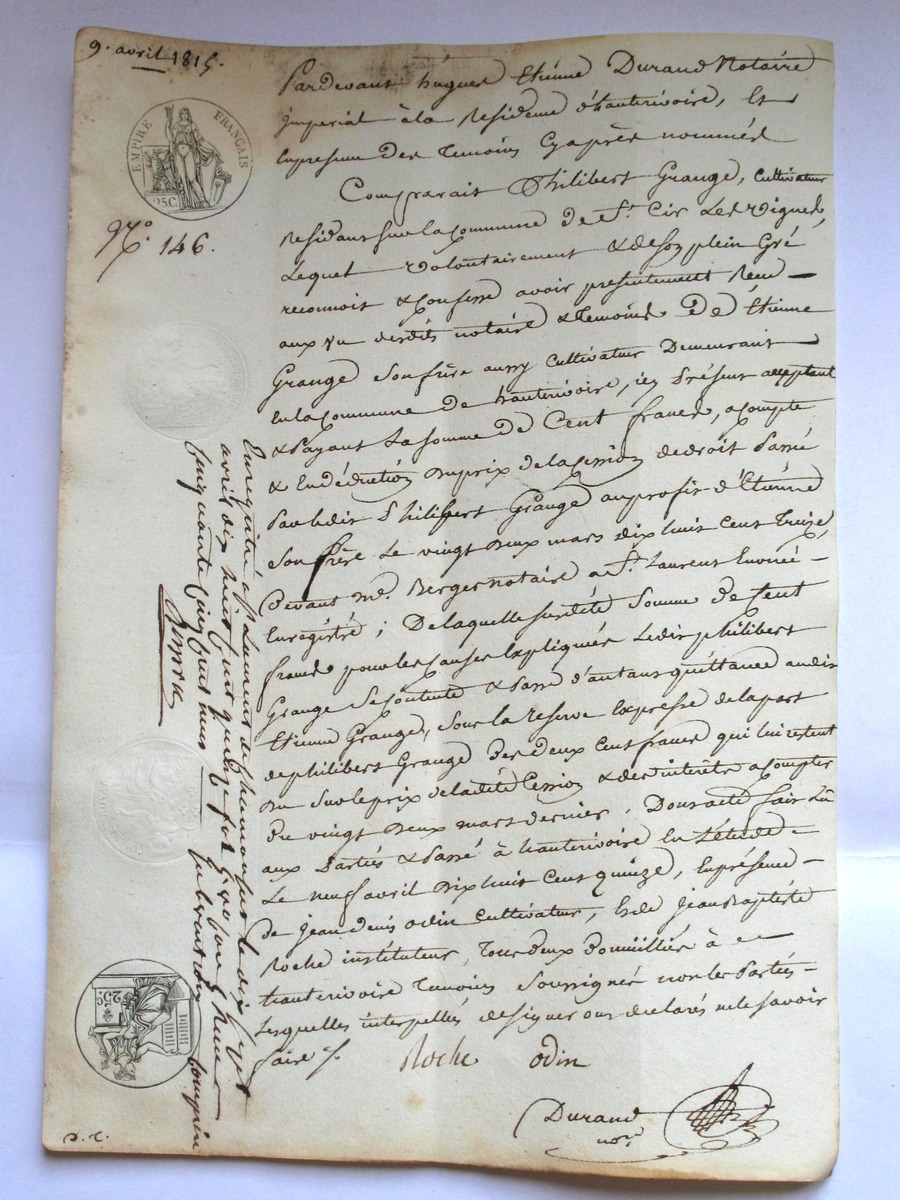 9. avril 1815.
EMPIRE FRANÇAIS
25C.
N.º 146.
Pardevant hugues Etienne Durand Notaire
imperial à la Residence d'hauterivoire, Et
Enpresence Des Temoins Cyaprès nommés
Comparait Philibert Grange, Cultivateur
Residant sur la Commune De St. Cir Les Vignes,
Lequel volontairement & de son plein Gré
reconnoit & Confesse avoir presentement Recu
aux vu desdits notaire & Temoins De d'Etienne
Grange son frère aussy Cultivateur Demeurant
En la Commune De hauterivoire, icy Présent acceptant
& Payant La somme De Cent francs, acompte
& En déduction Du prix de la Cession de droit Passé
Par ledit Philibert Grange au profit d'Etienne
son frère Le vingt Deux mars Dix huit Cent Treize,
Devant Me. Berger notaire a St. Laurent
Enregistré ; De laquelle susdité somme De Cent
francs pour les Causes Expliquées Ledit philibert
Grange se Contente & Passe d'autant quittance audit
Etienne Grange, sous la reserve Expresse de la part
de philibert Grange Des deux Cent francs qui lui restent
Du sur le prix de la dité Cession & des interêts a Compter
Du vingt Deux mars dernier. Dont acte fait Lû
aux Partiés & Passé à hauterivoire En L'étude
Le neuf avril Dix huit Cent quinze, En présence
De Jean Denis odin Cultivateur, & de Jean Baptiste
Roche instituteur, Tous deux Domiciliés à
hauterivoire Temoins Soussignés non les Partiés
Lesquelles interpellés de signer ont declaré ne le savoir
faire %.
Roche odin
Durand
not.
Enregistré à St Laurent de Chamousset le dix sept
avril dix huit Cent quinze fol.
Cinquante cinq centimes
Compris
25C.